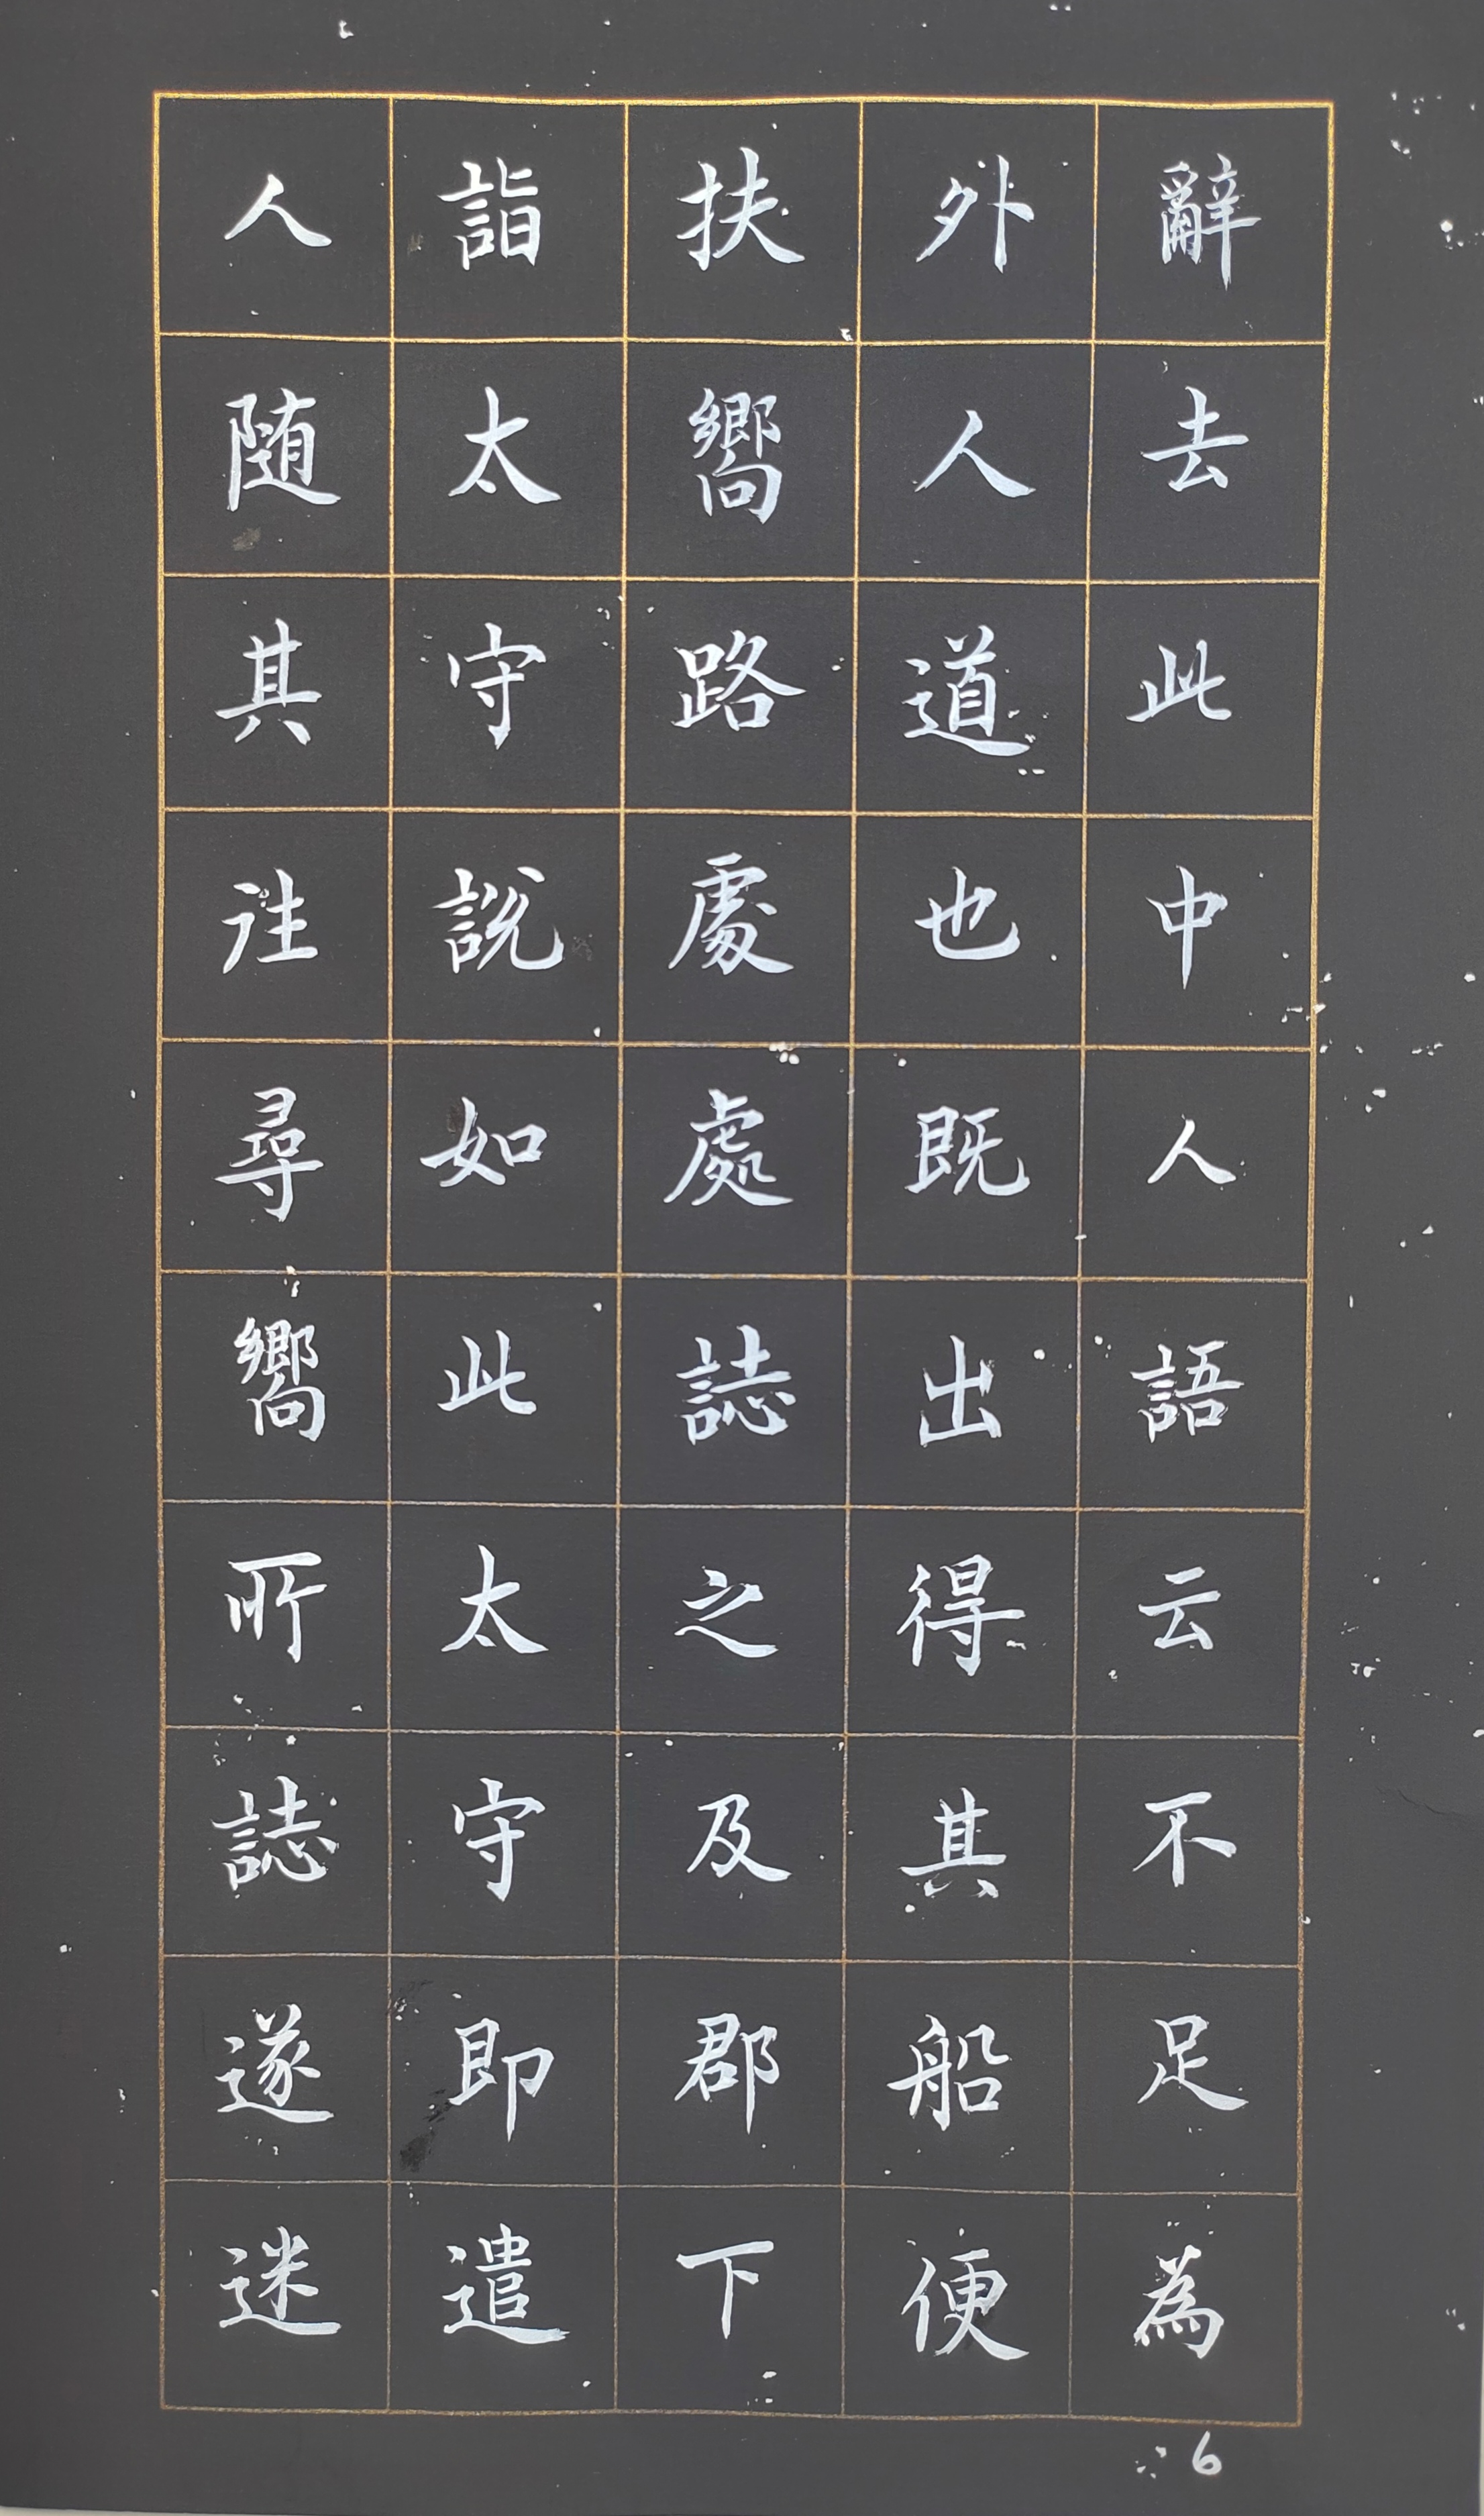 辭去此中人語云不足為
外人道也既出得其船便
扶嚮路處處誌之及郡下
詣太守說如此太守即遣
人随其往尋嚮所誌遂迷
6